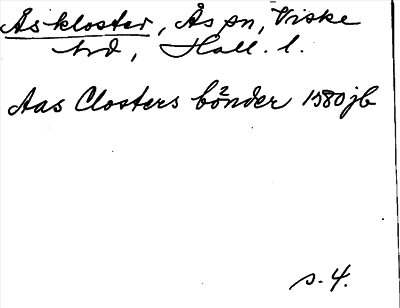 Åskloster, Ås sn, Viske
hrd, Hall. l.
Aas Closters bönder 1580 jb
s. 4.